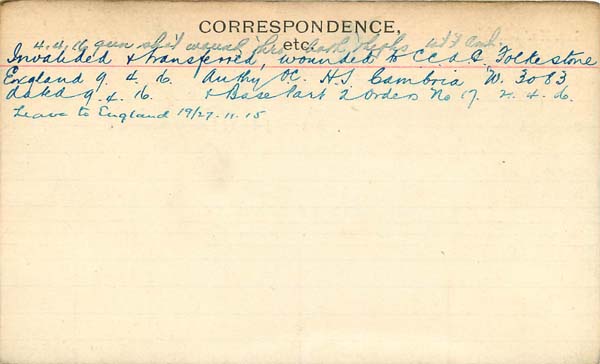 CORRESPONDENCE,
etc.
4.4.16 gun shot wound thro' both thighs
Invalided & transferred, wounded to C.C.A.C. Folkestone
England 9.4.16. Authy O.C. H.S. Cambria W. 3083
dated 9.4.16. & Base Part 2 Orders No 17. 2.4.16.
Leave to England 19/27-11-15